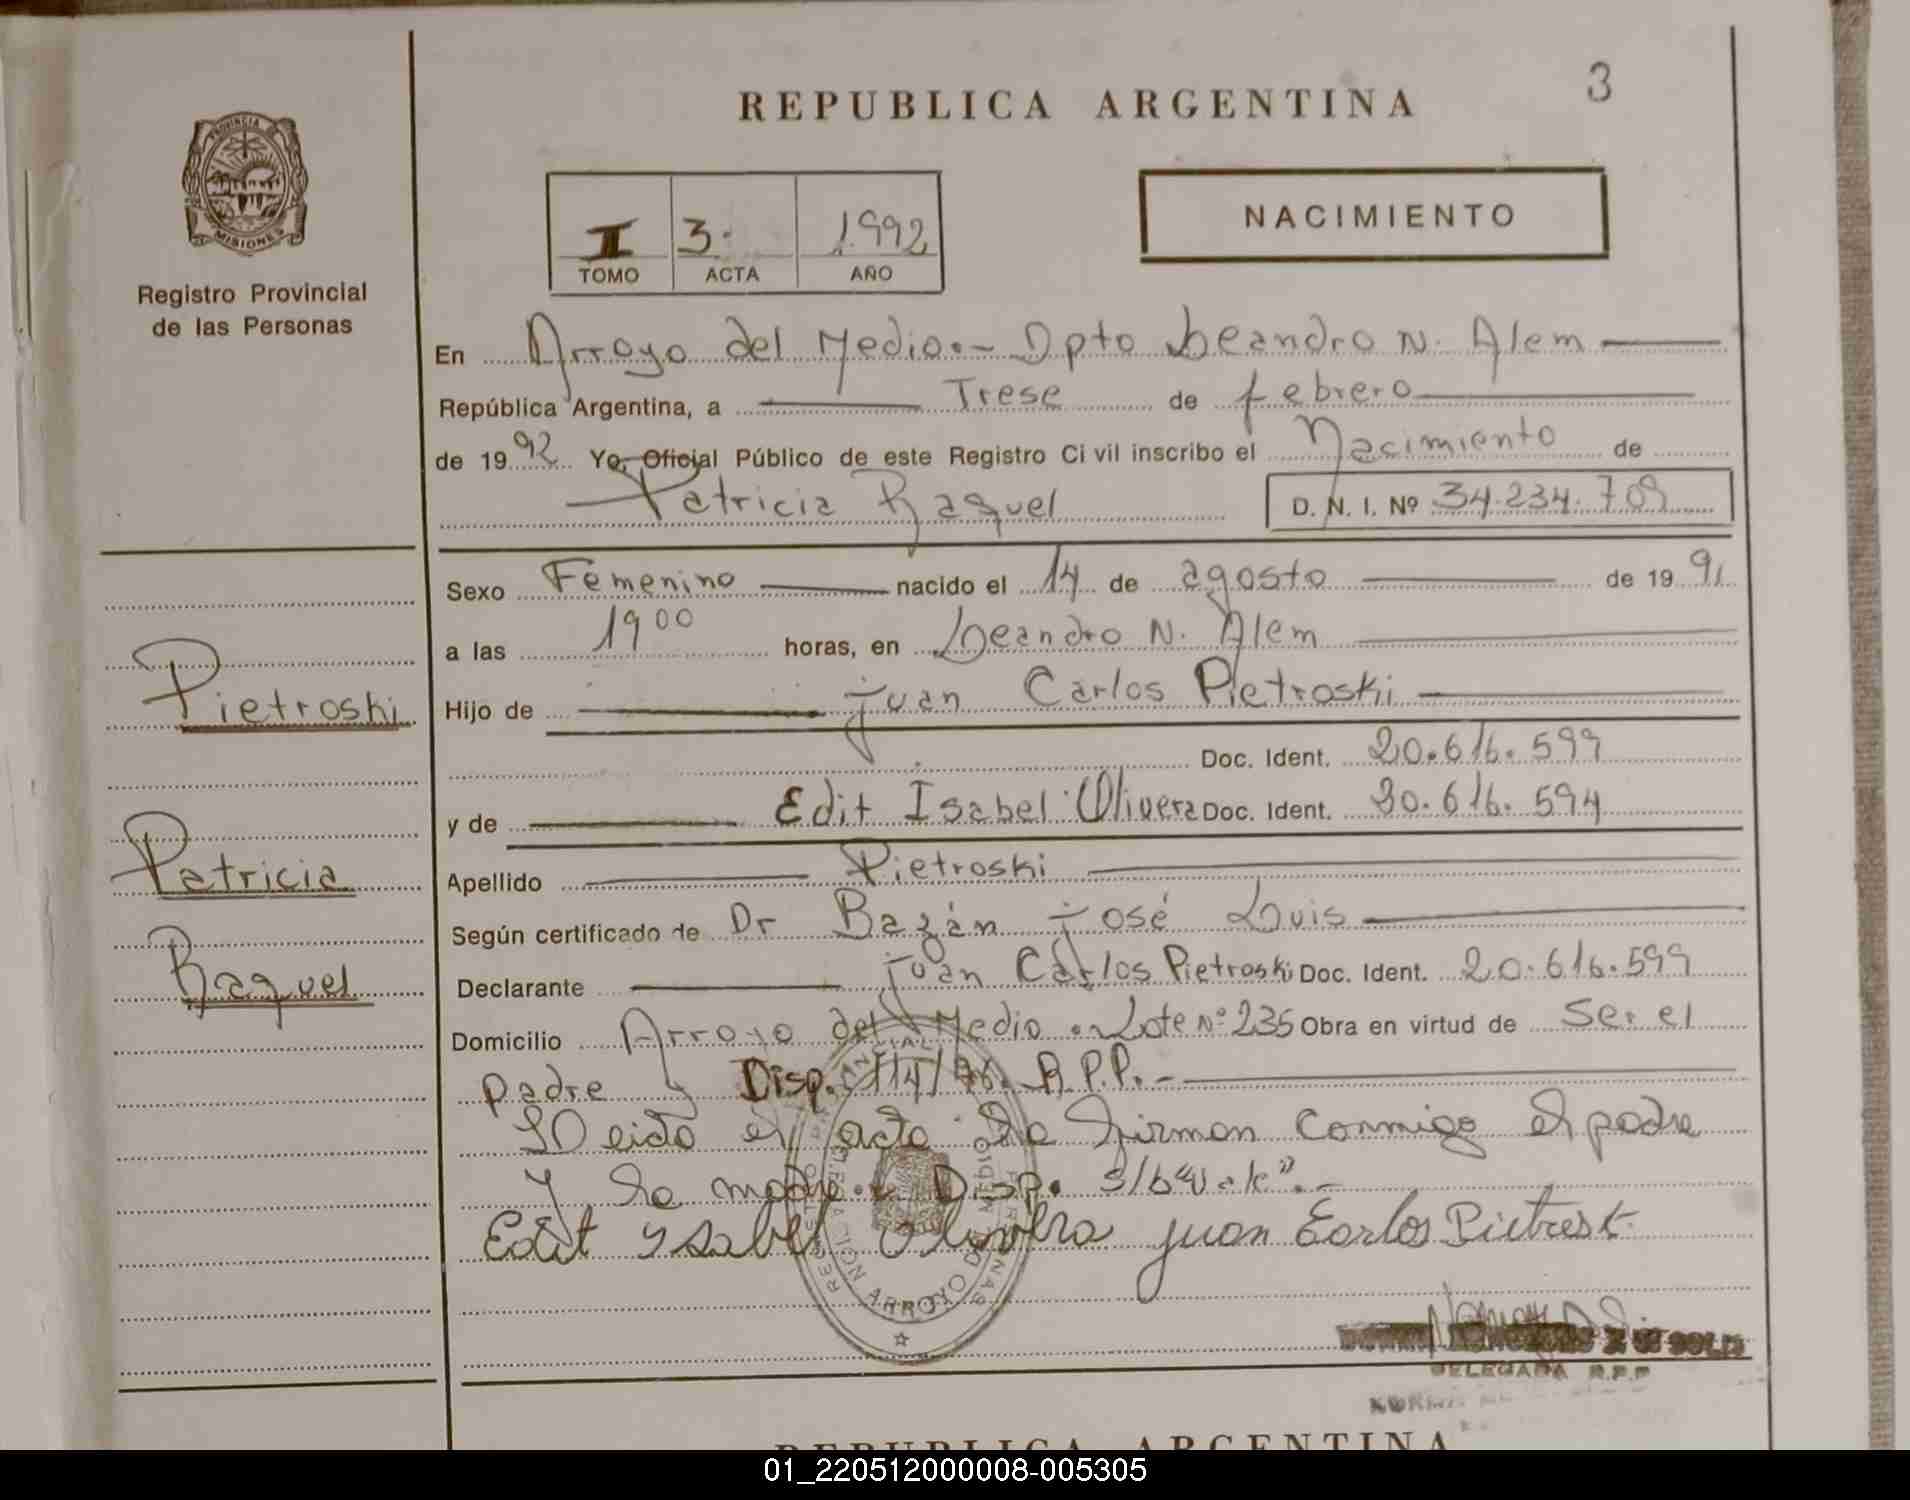 REPUBLICA ARGENTINA
3
PROVINCIA DE
MISIONES
Registro Provincial
de las Personas
I 3. 1992
TOMO ACTA AÑO
NACIMIENTO
En Arroyo del Medio.- Dpto Leandro N. Alem
República Argentina, a Trese de febrero
de 1992 Yo, Oficial Público de este Registro Civil inscribo el Nacimiento de
Patricia Raquel D. N. I. Nº 34.234.709
Sexo Femenino nacido el 14 de agosto de 1991
a las 19 00 horas, en Leandro N. Alem
Pietroski
Hijo de Juan Carlos Pietroski
Doc. Ident. 20.616.599
y de Edit Isabel Olivera Doc. Ident. 20.616.594
Patricia
Apellido Pietroski
Según certificado de Dr Bazán José Luis
Raquel
Declarante Juan Carlos Pietroski Doc. Ident. 20.616.599
Domicilio Arroyo del Medio - Lote Nº 235 Obra en virtud de ser el
padre y Disp. 114/76. R.P.P.-
Leida el acta la firman conmigo el padre
y la madre. Disp. s/b "vale".-
Edit Ysabel Olivera Juan Carlos Pietrosk
ARROYO DEL MEDIO
DELEGADA R.P.P
REPUBLICA ARGENTINA
01_220512000008-005305